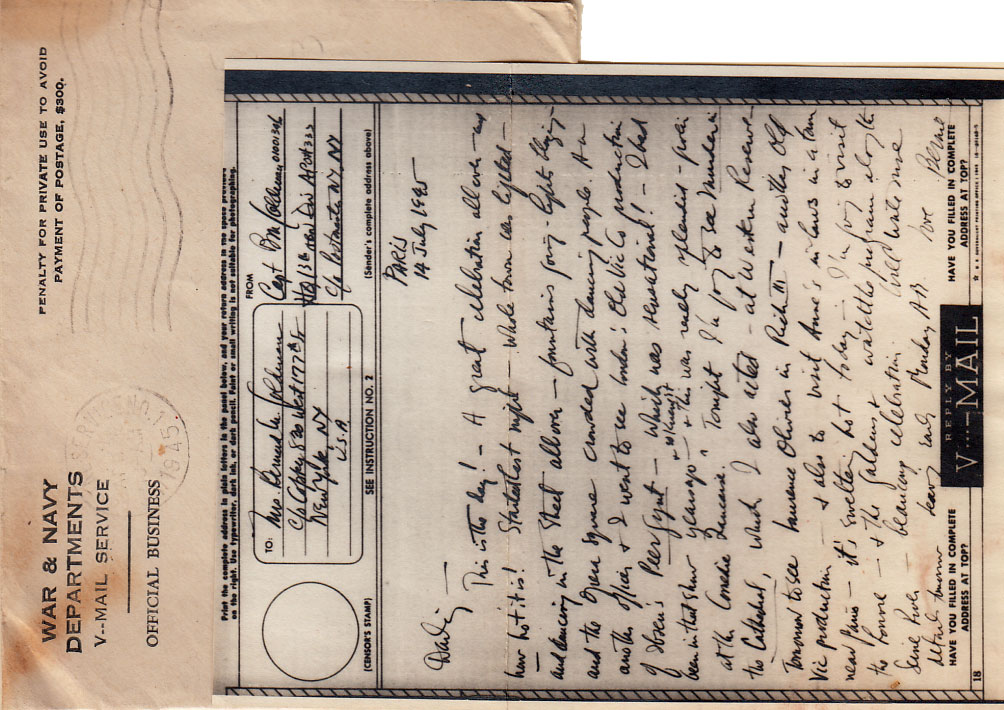 WAR & NAVY
DEPARTMENTS
V--MAIL SERVICE
OFFICIAL BUSINESS
PENALTY FOR PRIVATE USE TO AVOID
PAYMENT OF POSTAGE, $300.
Print the complete address in plain letters in the panel below, and your return address in the space provided
on the right. Use typewriter, dark ink, or dark pencil. Faint or small writing is not suitable for photographing.
(CENSOR'S STAMP)
TO:
Mrs.
C/o
New York NY
U.S.A
SEE INSTRUCTION NO. 2
FROM
Capt 01001346
Hq 13th
C/o Postmaster NY NY
(Sender's complete address above)
PARIS
14 July 1945
Darling —
This is the day! — A great celebration all over — and
how hot it is! Startest night — Whole town was lighted —
and dancing in the street all over — fountains going — lights blazing
and the Opera square crowded with dancing people. An
another officer & I went to see London's Old Vic Co production
of Ibsen's Peer Gynt — Which was sensational! — I had
been in that show years ago — & this was really splendid —
at the Comedie Francaise. Tonight I'm going to see Murder in
the Cathedral, which I also acted — at Western Reserve
Tomorrow to see Laurence Olivier in Rich III — another Old
Vic production — & also to visit Anne's in laws in a town
near Paris — it's sweltering hot today — I'm going to visit
the — & the gardens & watch the program along the
Seine River — celebration. Will write more
details tomorrow leave early Monday AM love
HAVE YOU FILLED IN COMPLETE
ADDRESS AT TOP?
REPLY BY
V...—MAIL
HAVE YOU FILLED IN COMPLETE
ADDRESS AT TOP?
18